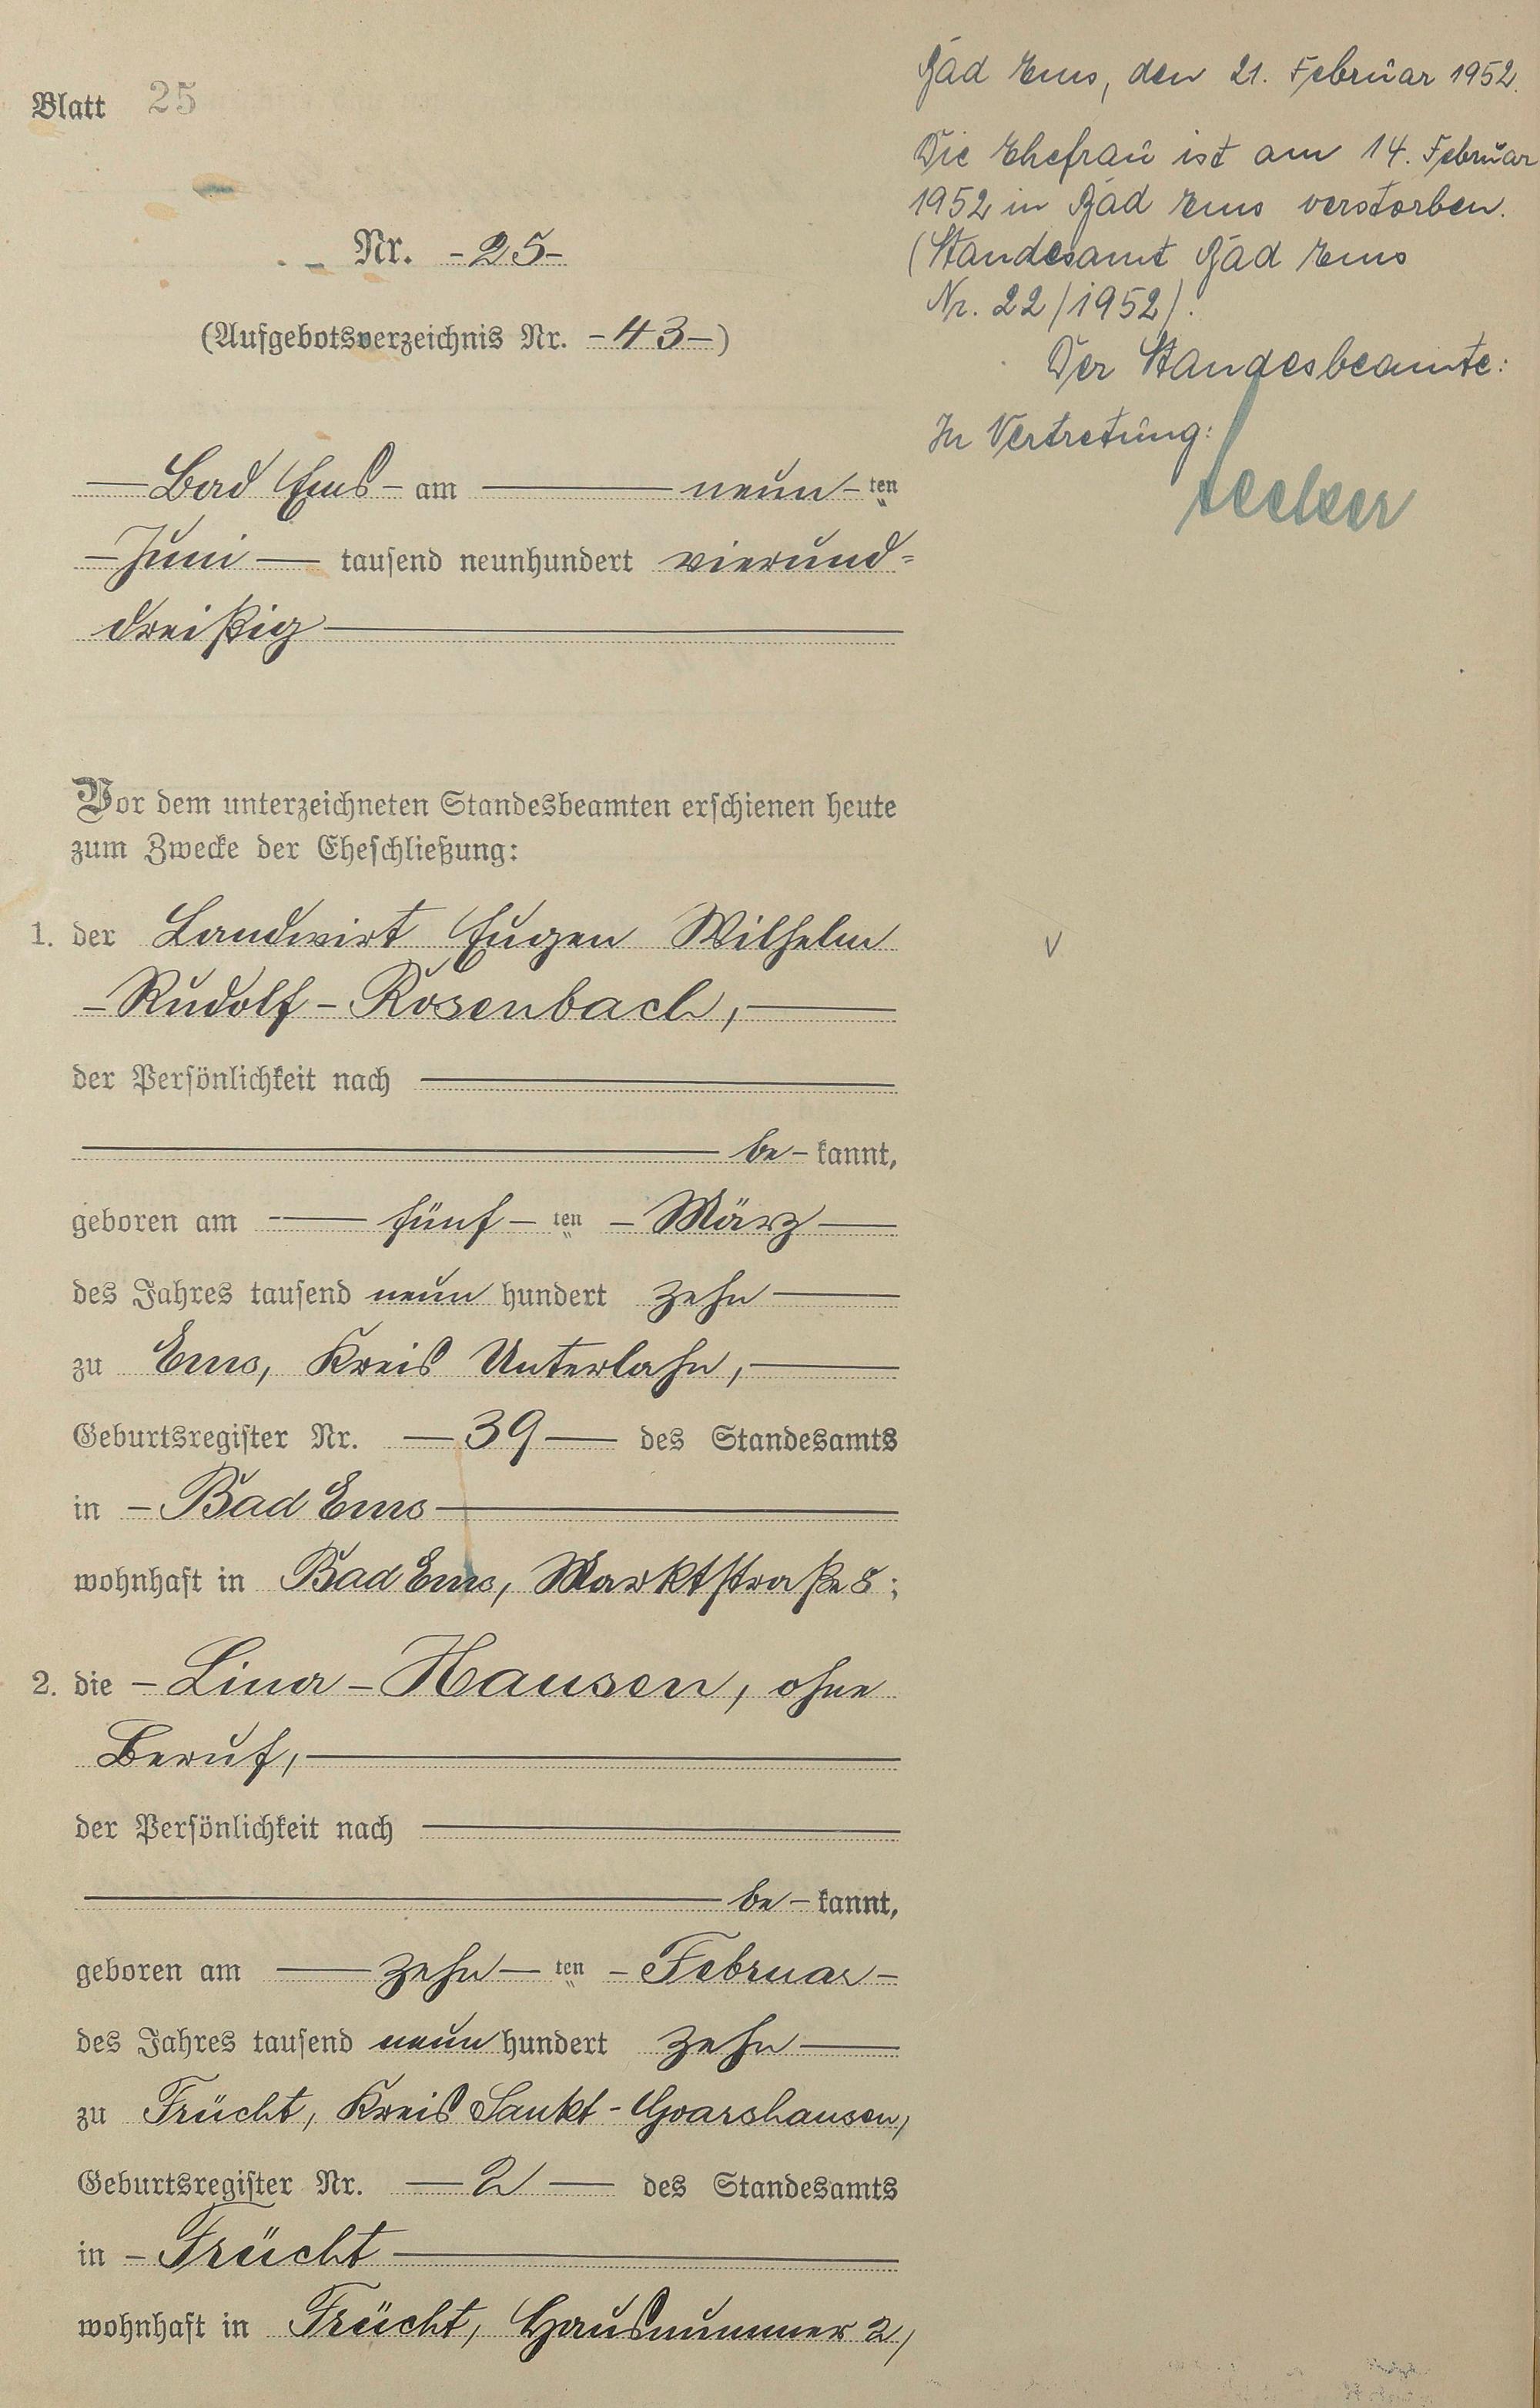 Blatt 25
Nr. - 25 -
(Aufgebotsverzeichnis Nr. - 43 - )
— Bad Ems - am — neun - ten
- Juni — tausend neunhundert vierund=
dreißig —
Vor dem unterzeichneten Standesbeamten erschienen heute
zum Zwecke der Eheschließung:
1. der Landwirt Eugen Wilhelm
- Rudolf - Rosenbach, —
der Persönlichkeit nach —
— be - kannt,
geboren am — fünf - ten - März —
des Jahres tausend neun hundert zehn —
zu Ems, Kreis Unterlahn, —
Geburtsregister Nr. — 39 — des Standesamts
in - Bad Ems —
wohnhaft in Bad Ems, Marktstraße 8;
2. die - Lina - Hausen, ohne
Beruf, —
der Persönlichkeit nach —
— be - kannt,
geboren am — zehn - ten - Februar -
des Jahres tausend neun hundert zehn —
zu Frücht, Kreis Sankt-Goarshausen,
Geburtsregister Nr. — 2 — des Standesamts
in - Frücht —
wohnhaft in Frücht, Hausnummer 2,
Bad Ems, den 21. Februar 1952.
Die Ehefrau ist am 14. Februar
1952 in Bad Ems verstorben.
(Standesamt Bad Ems
Nr. 22/1952).
Der Standesbeamte:
In Vertretung: